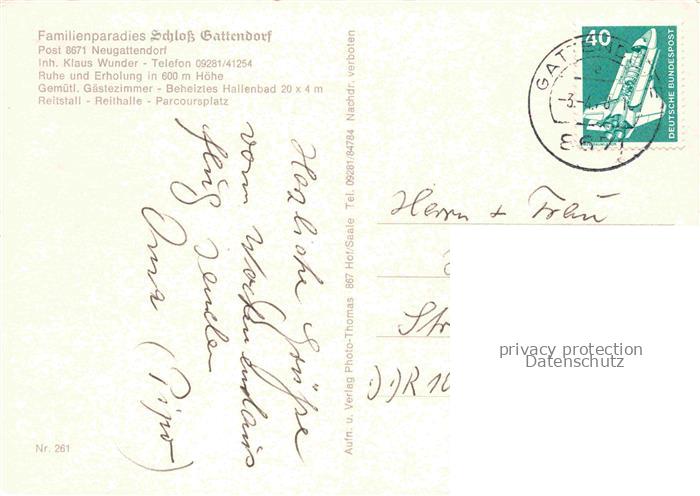 Familienparadies Schloß Gattendorf
Post 8671 Neugattendorf
Inh. Klaus Wunder - Telefon 09281/41254
Ruhe und Erholung in 600 m Höhe
Gemütl. Gästezimmer - Beheiztes Hallenbad 20 x 4 m
Reitstall - Reithalle - Parcoursplatz
Herzliche Grüße
vom Wochenendaus
flug senden
Oma (Pipo)
Nr. 261
Aufn. u. Verlag Photo-Thomas 867 Hof/Saale Tel. 09281/84784 Nachdr. verboten
40
DEUTSCHE BUNDESPOST
8671
Herrn + Frau
Str
privacy protection
Datenschutz